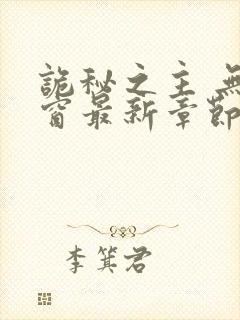 詭秘之主 無
窗最新章節
李箕君